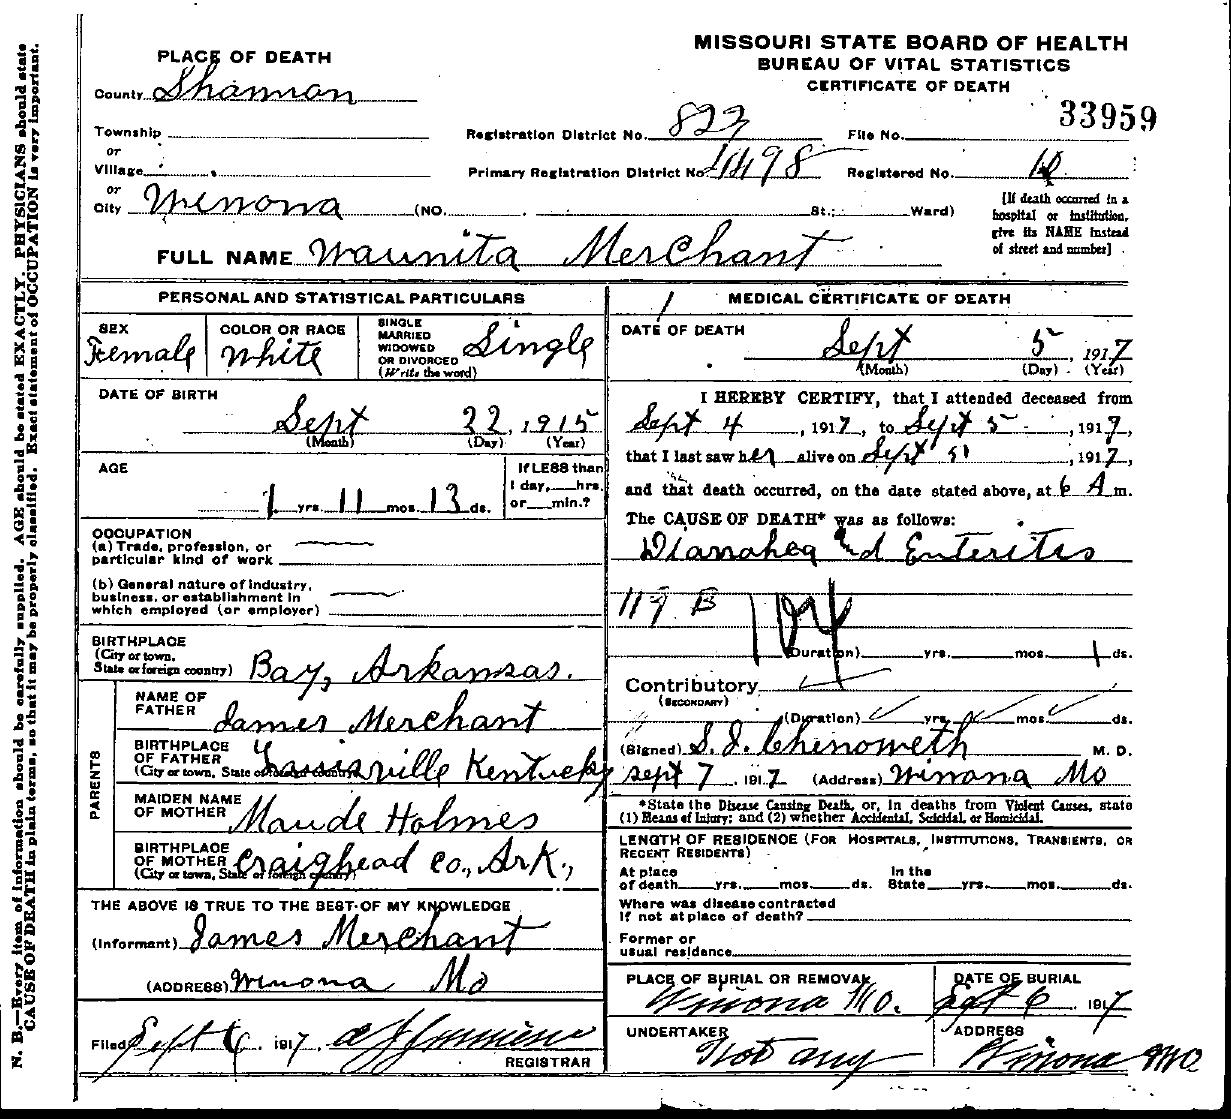 N. B.—Every item of information should be carefully supplied. AGE should be stated EXACTLY. PHYSICIANS should state
CAUSE OF DEATH in plain terms, so that it may be properly classified. Exact statement of OCCUPATION is very important.
MISSOURI STATE BOARD OF HEALTH
BUREAU OF VITAL STATISTICS
CERTIFICATE OF DEATH
33959
PLACE OF DEATH
County Shannon
Township
or
Village
or
City Winona (NO. St.; Ward)
Registration District No. 823 File No.
Primary Registration District No. 4498 Registered No. 10
[If death occurred in a
hospital or institution,
give its NAME instead
of street and number]
FULL NAME Waunita Merchant
PERSONAL AND STATISTICAL PARTICULARS
SEX
Female
COLOR OR RACE
White
SINGLE
MARRIED
WIDOWED
OR DIVORCED
(Write the word)
Single
DATE OF BIRTH
Sept 22, 1915
(Month) (Day) (Year)
AGE
1 yrs. 11 mos. 13 ds.
If LESS than
1 day, hrs.
or min.?
OCCUPATION
(a) Trade, profession, or
particular kind of work
(b) General nature of industry,
business, or establishment in
which employed (or employer)
BIRTHPLACE
(City or town,
State or foreign country) Bay, Arkansas.
PARENTS
NAME OF
FATHER James Merchant
BIRTHPLACE
OF FATHER
(City or town, State or foreign country) Louisville Kentucky
MAIDEN NAME
OF MOTHER Maude Holmes
BIRTHPLACE
OF MOTHER
(City or town, State or foreign country) Craighead Co., Ark.,
THE ABOVE IS TRUE TO THE BEST OF MY KNOWLEDGE
(Informant) James Merchant
(ADDRESS) Winona Mo
Filed Sept 6, 1917
REGISTRAR
MEDICAL CERTIFICATE OF DEATH
DATE OF DEATH
Sept 5, 1917
(Month) (Day) (Year)
I HEREBY CERTIFY, that I attended deceased from
Sept 4, 1917, to Sept 5, 1917,
that I last saw her alive on Sept 5, 1917,
and that death occurred, on the date stated above, at 6 A m.
The CAUSE OF DEATH* was as follows:
Diarrahea and Enteritis
119 B 104
(Duration) yrs. mos. 1 ds.
Contributory
(SECONDARY)
(Duration) yrs. mos. ds.
(Signed) S. J. Chenoweth M. D.
Sept 7, 1917. (Address) Winona Mo
*State the Disease Causing Death, or, in deaths from Violent Causes, state
(1) Means of Injury; and (2) whether Accidental, Suicidal, or Homicidal.
LENGTH OF RESIDENCE (FOR HOSPITALS, INSTITUTIONS, TRANSIENTS, OR
RECENT RESIDENTS)
At place In the
of death yrs. mos. ds. State yrs. mos. ds.
Where was disease contracted
If not at place of death?
Former or
usual residence
PLACE OF BURIAL OR REMOVAL
Winona Mo.
DATE OF BURIAL
Sept 6 1917
UNDERTAKER
Not any
ADDRESS
Winona Mo